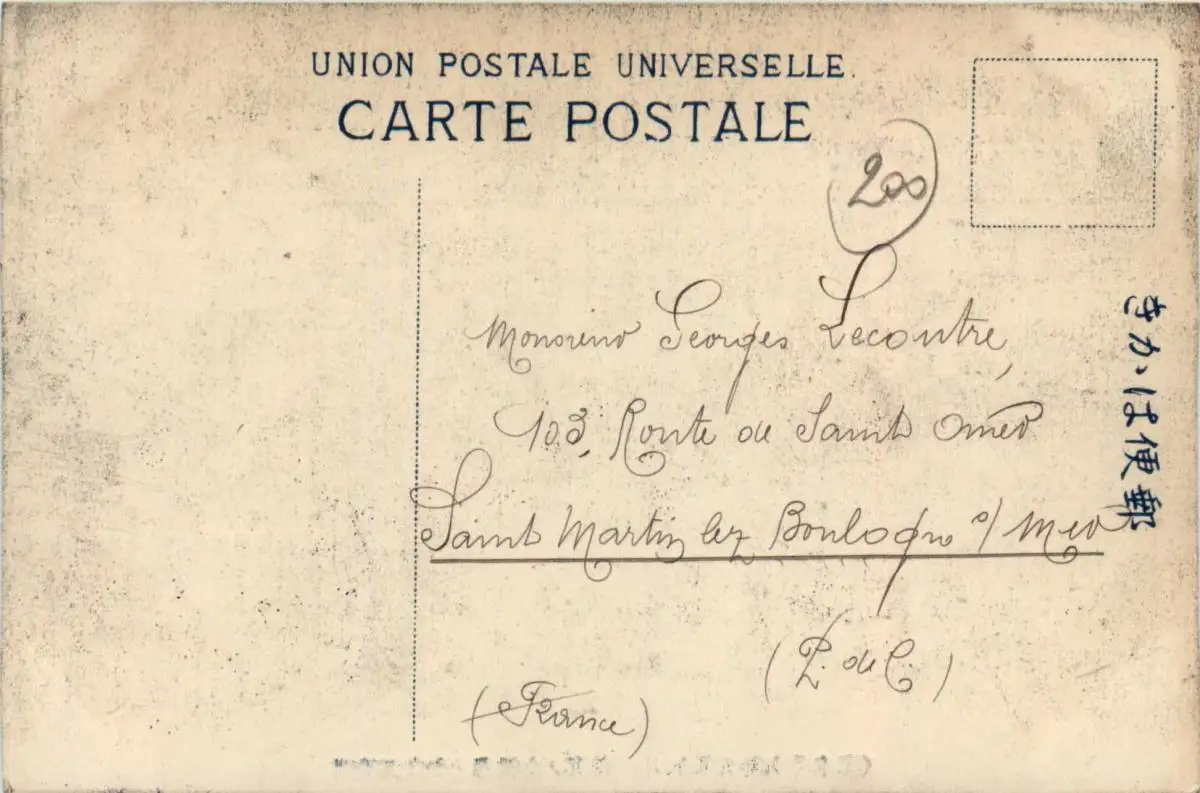 UNION POSTALE UNIVERSELLE.
CARTE POSTALE
200
Monsieur Georges Lecontre,
103, Route de Saint Omer
Saint Martin lez Boulogne s/ Mer
(P. de C.)
(France)
きかは便郵